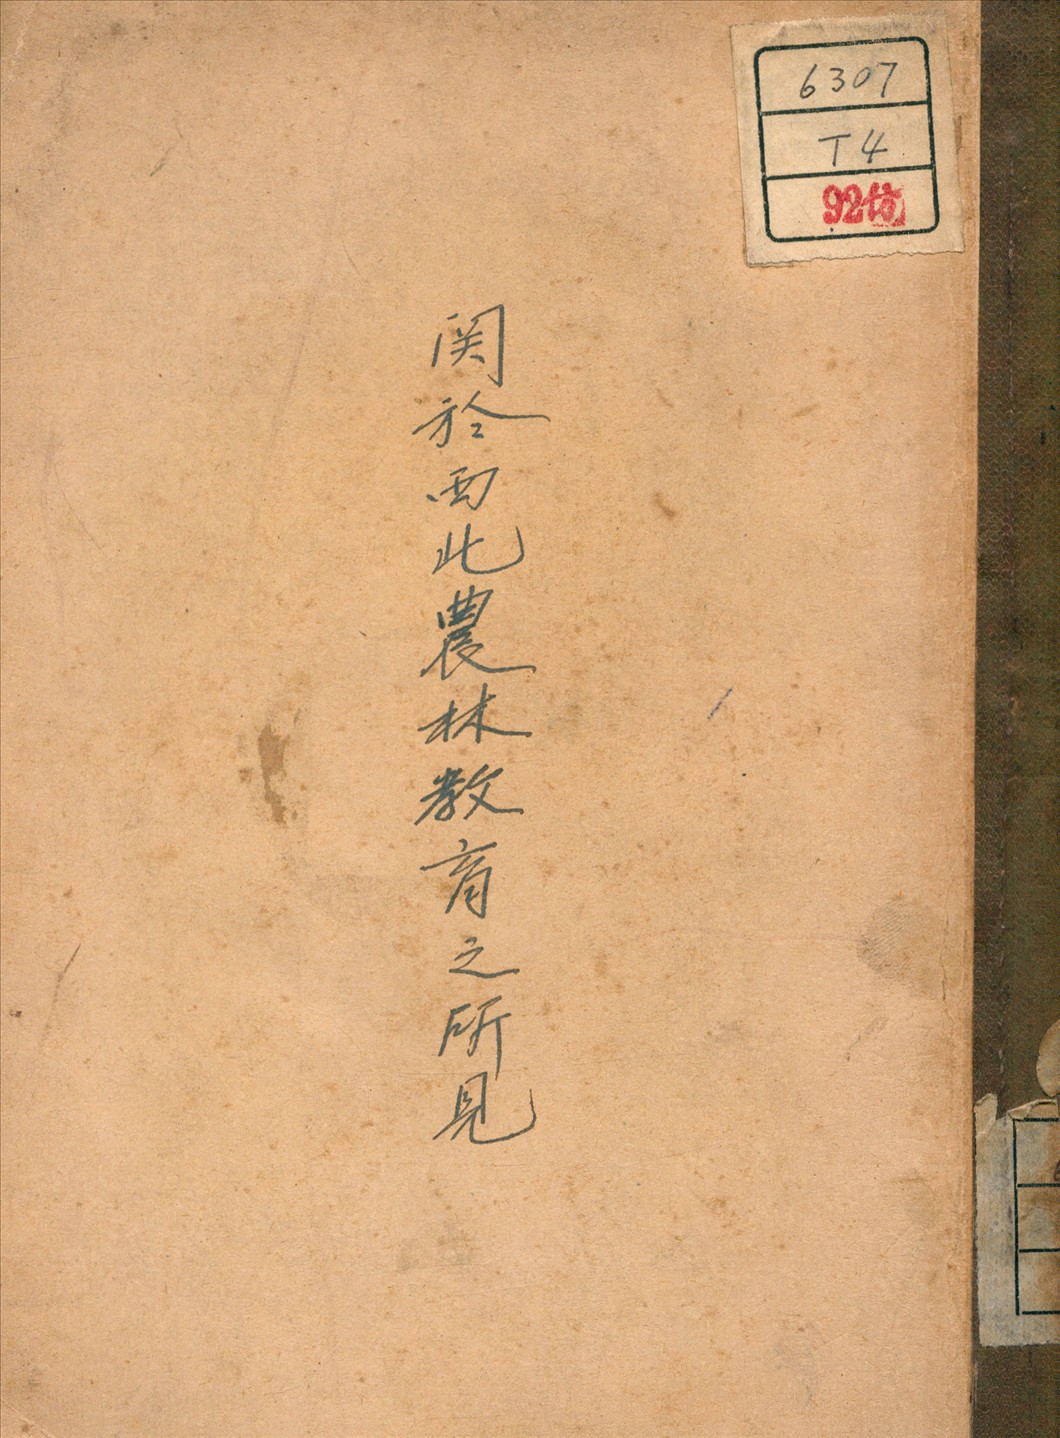 6307
T4
92
関於西北農林教育之所見